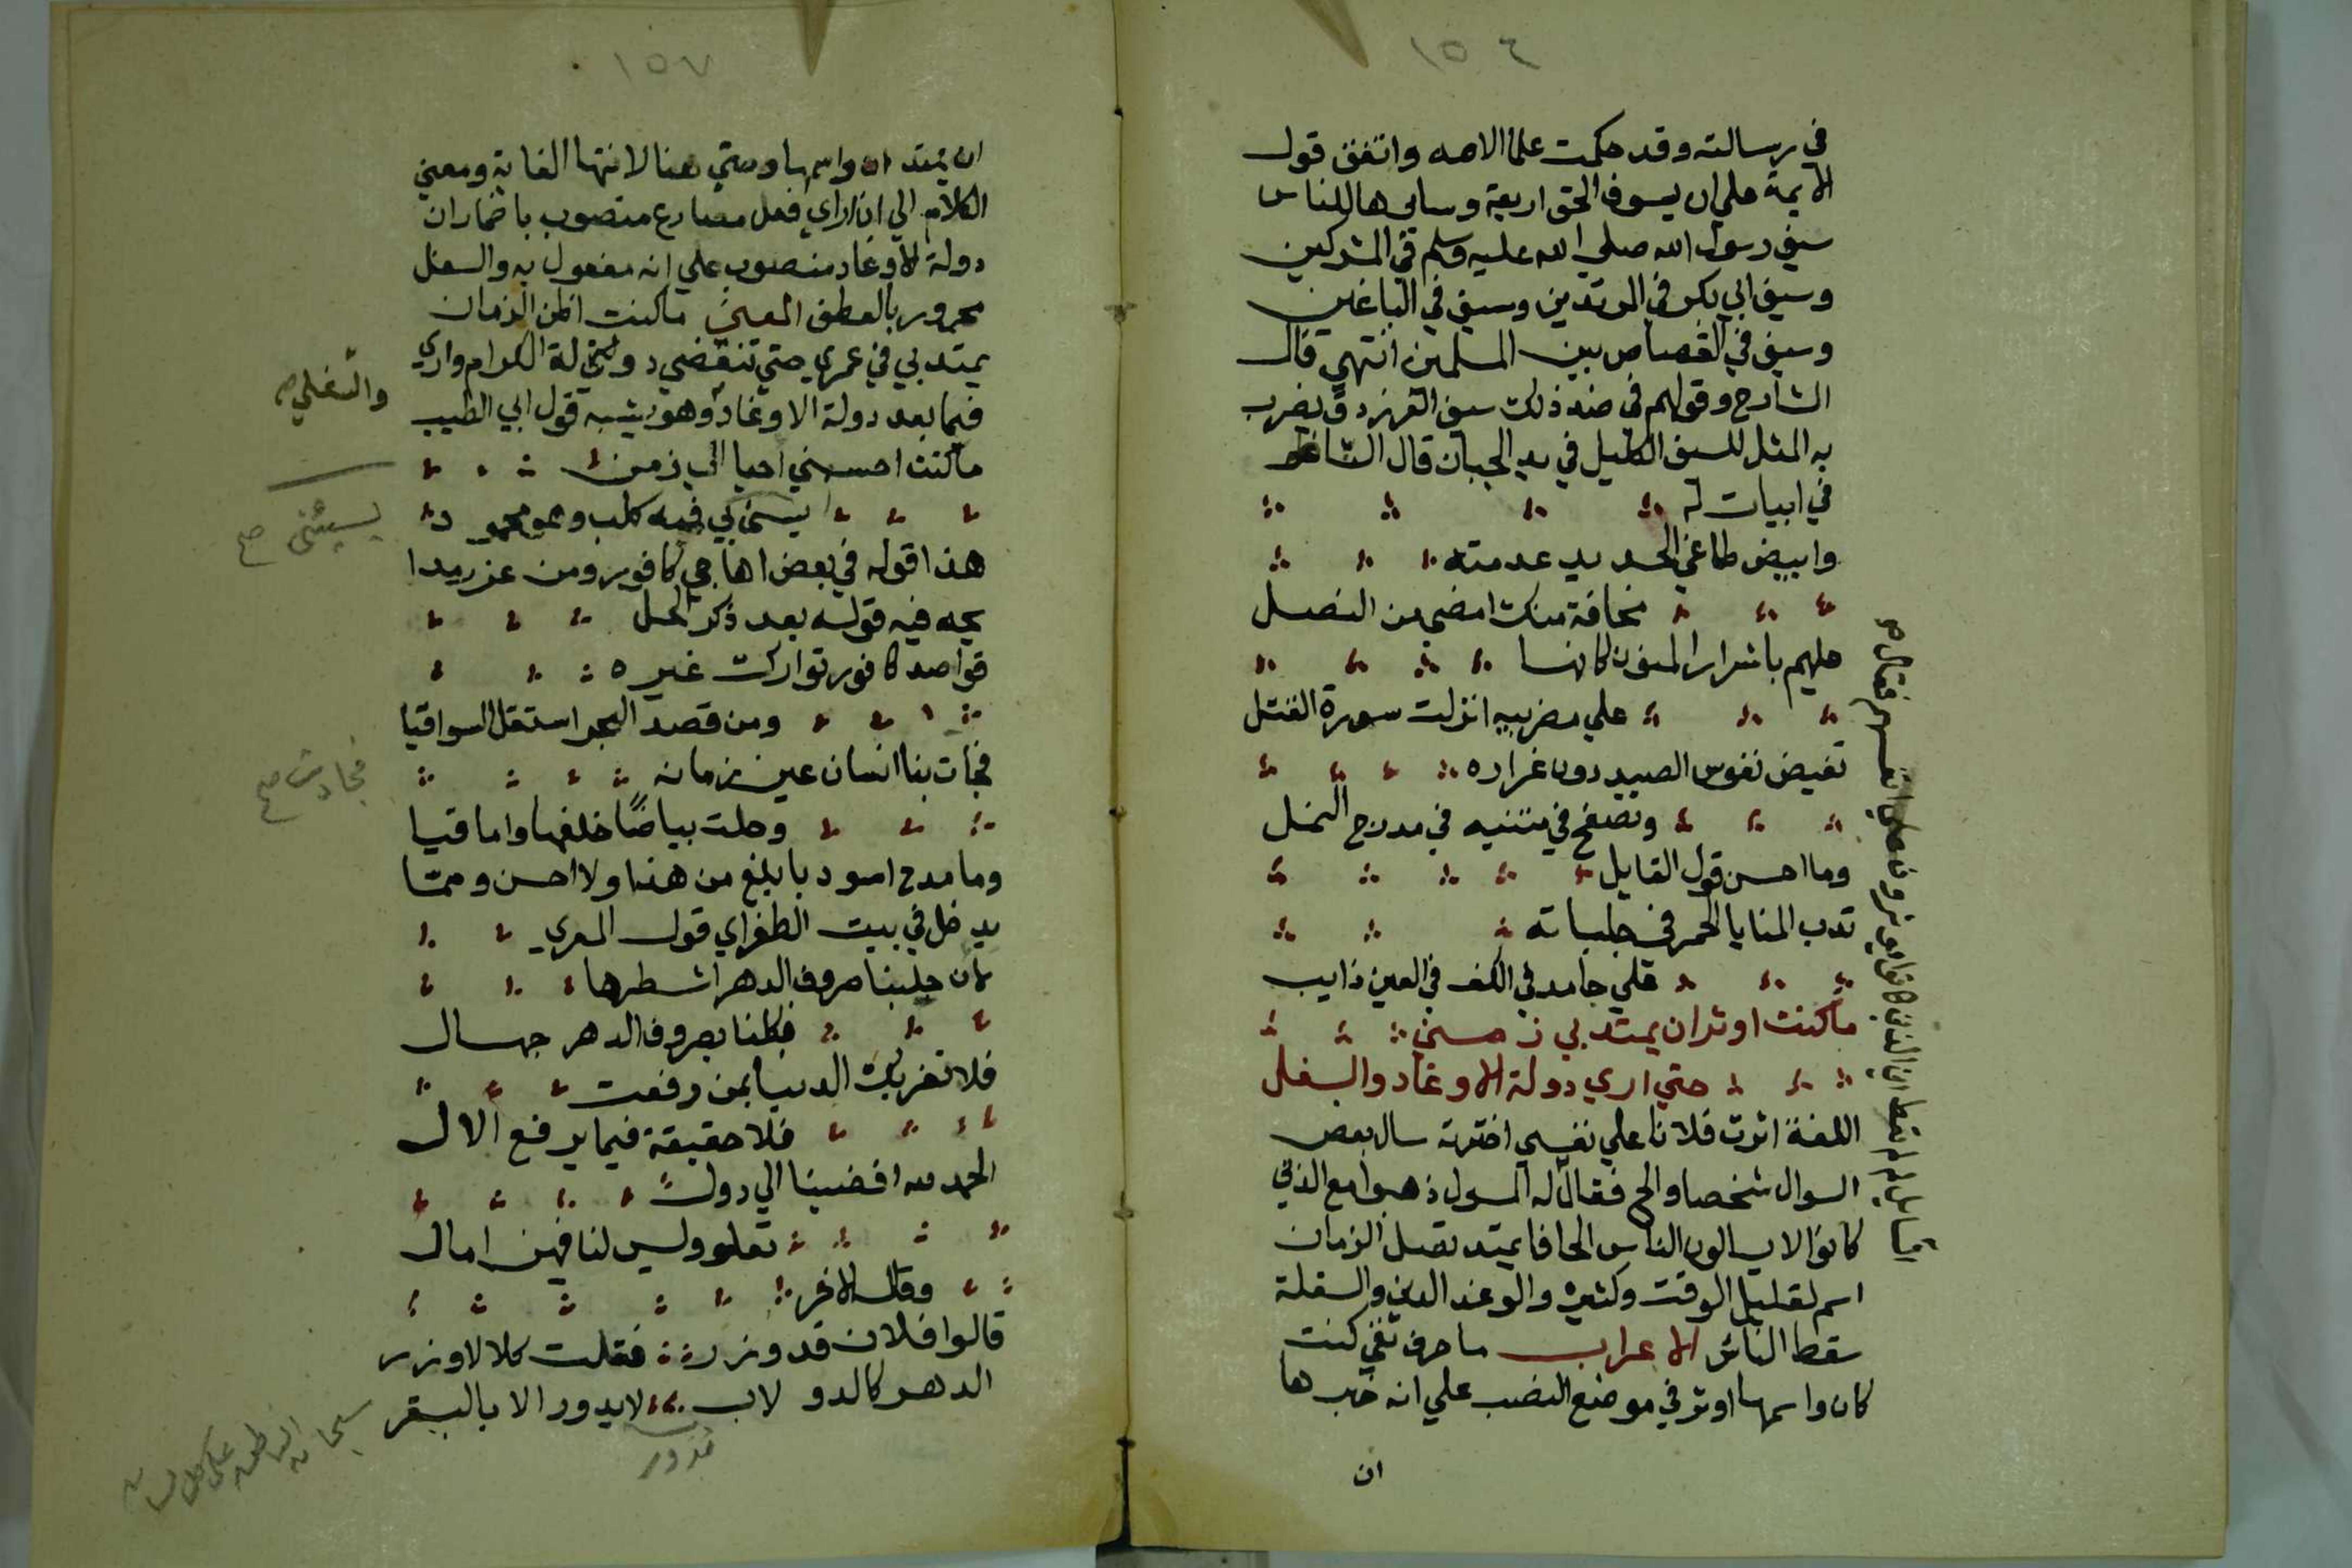 ١٥٤
في رسالته وقد حكمت علما الامه واتفق قول
الايمة علي ان ليسوف الحق اربعة وسايرها للناس
سيف رسول الله صلي الله عليه وسلم في المشركين
وسيف ابي بكر في المرتدين وسيف في الباغين
وسيف في القصاص بين المسلمين انتهي قال
الشارح وقولهم في ضد ذلك سيف الفرزدق يضرب
به المثل للسيف الكليل في يد الجبان قال الشاعر
في ابيات له
وابيض طاغي الحديد عدمته
مخافة منك امضي من النصل
عليهم باسرار المنون كانما
علي مضربيه انزلت سورة القتل
تفيض نفوس الصيد دون غراره
وتصفح في متنيه في مدرج النمل
وما احسن قول القايل
تدب المنايا الحمر في جلباته
في جامد في الكف في العين ذايب
ما كنت اوثر ان يمتد بي زمني
حتي اري دولة الاوغاد والسفل
اللغة اثرت فلانا علي نفسي اخترته سال بعض
السوال شخصا والح فقال له المسول ذهبوا مع الذي
كانوا لا يسالون الناس الحافا يمتد تصل الزمان
اسم لقليل الوقت وكثيره والوغد الدني والسفلة
سقط الناس الاعراب ما حرف نفي كنت
كان واسمها اوثر في موضع النصب علي انه خبرها
ان
١٥٧
ان يمتد ان واسمها وحتي هنا لانتها الغاية ومعني
الكلام الي ان اراي فعل مضارع منصوب باضمار ان
دولة الاوغاد منصوب علي انه مفعول به والسفل
مجرور بالعطف المعني ما كنت اظن الزمان
يمتد بي في عمري حتي تنقضي دولة الكرام واري
فيما بعد دولة الاوغاد وهو يشبه قول ابي الطيب
والسفلي
ما كنت احسبني احيا الي زمن
يسي بي فيه كلب وهو محمود
يسيئني صح
هذا قوله في بعض اهاجي كافور ومن غرر مدا
يحه فيه قوله بعد ذكر الخيل
قواصد كافور توارك غيره
ومن قصد البحر استقل السواقيا
فجات بنا انسان عين زمانه
فجاءت صح
وحلت بياضًا خلفها واماقيا
وما مدح اسود بابلغ من هذا ولا احسن ومما
يدخل في بيت الطغراي قول المعري
لان حلبنا صروف الدهر اشطرها
فكلنا بصروف الدهر جهال
فلا تغريك الدنيا بمن رفعت
فلا حقيقة فيما يرفع الال
الحمد لله افضينا الي دول
تعلو وليس لنا فيهن امال
وقال الاخر
قالوا فلان قد وزر فقلت كلا لا وزر
الدهر كالدولاب لا يدور الا بالبقر